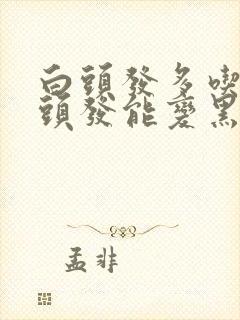 白頭發多喫
頭發能變黑
孟非